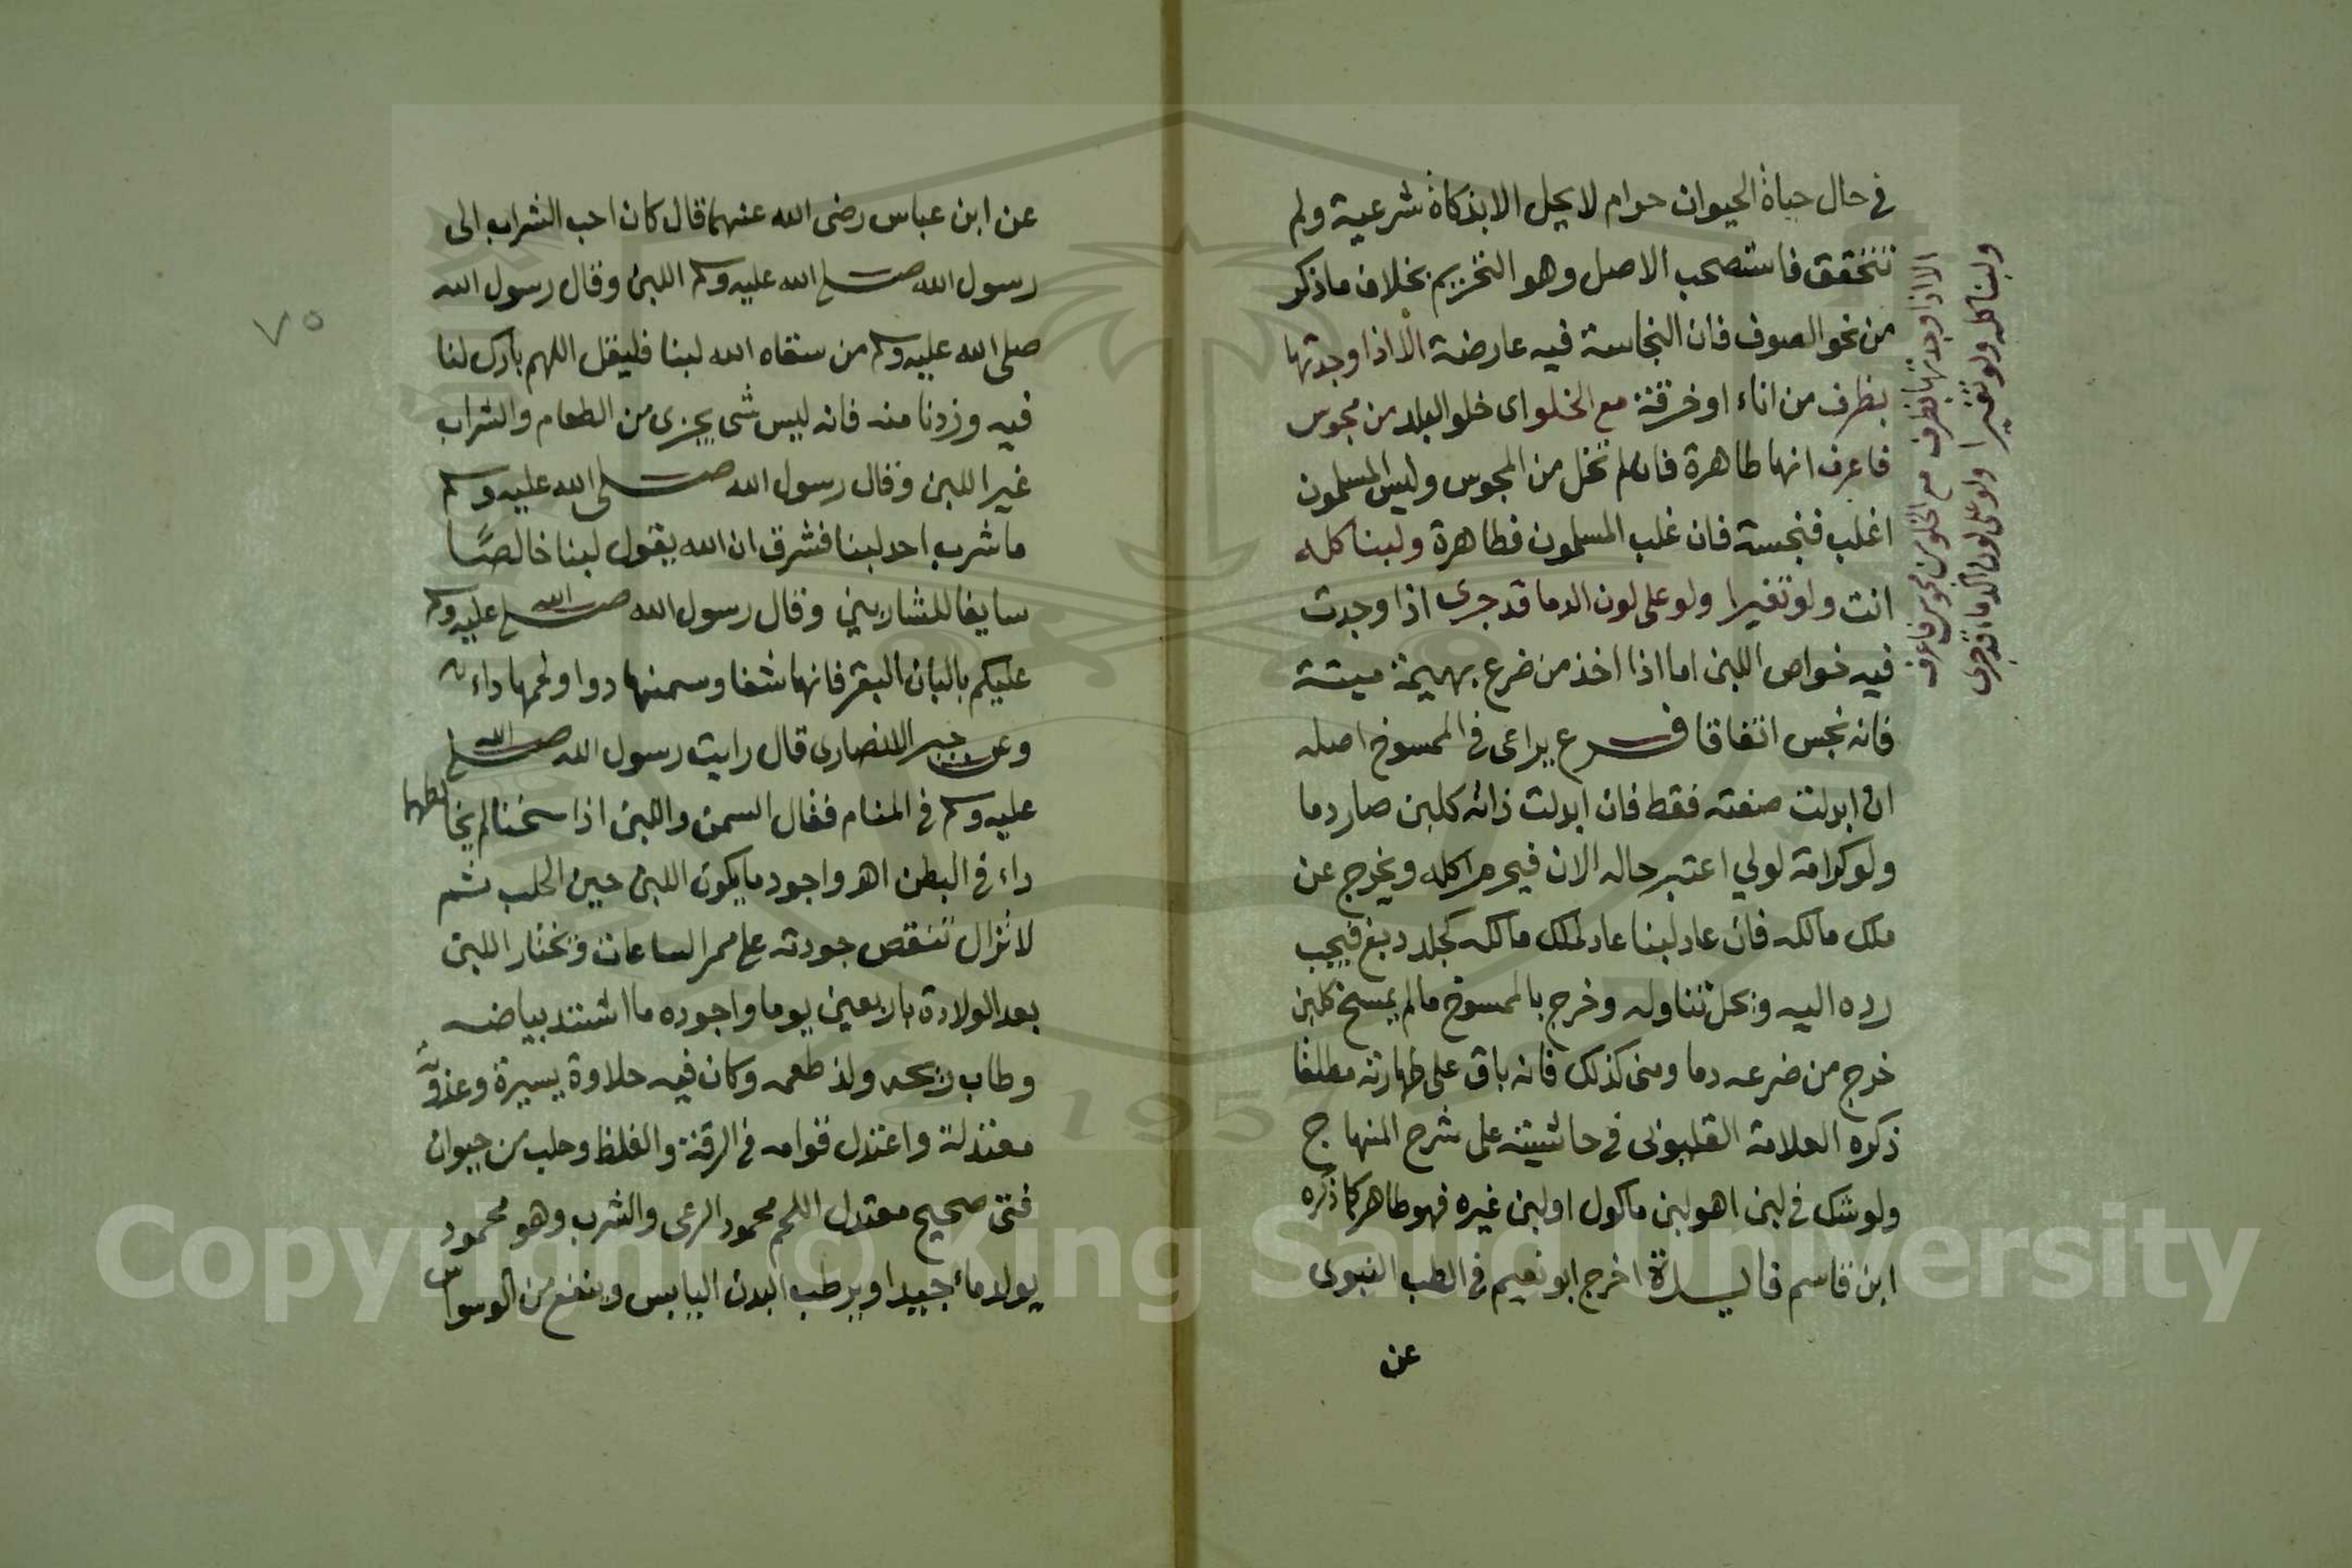 في حال حياة الحيوان حرام لا يحل الا بذكاة شرعية ولم
تتحقق فاستصحب الاصل وهو التحريم بخلاف ما ذكر
من نحو الصوف فان النجاسة فيه عارضة الا اذا وجدتها
بظرف من اناء او خرقة مع الخلو اى خلو البلد من مجوس
فاعرف انها طاهرة فان لم تخل من المجوس وليس المسلمون
اغلب فنجسة فان غلب المسلمون فطاهرة ولبنا كله
انت ولو تغيرا ولو على لون الدما قد جرى اذا وجدت
فيه خواص اللبن اما اذا اخذ من ضرع بهيمة ميتة
فانه نجس اتفاقا فرع يراعى في الممسوخ اصله
ان ابدلت صفته فقط فان ابدلت ذاته كلبن صار دما
ولو كرامة لولي اعتبر حاله الان فيحرم اكله ويخرج عن
ملك مالكه فان عاد لبنا عاد لملك مالكه كجلد دبغ فيجب
رده اليه ويحل تناوله وخرج بالممسوخ ما لم يمسخ كلبن
خرج من ضرعه دما ومنى كذلك فانه باق على طهارته مطلقا
ذكره العلامة القليوبى في حاشيته على شرح المنهاج
ولو شك في لبن اهو لبن ماكول او لبن غيره فهو طاهر كما ذكره
ابن قاسم فايدة اخرج ابو نعيم في الطب النبوى
عن
الا اذا وجدتها بظرف مع الخلو من مجوس فاعرف
ولبنا كله ولو تغيرا ولو على لون الدماء قد جرى
٧٥
عن ابن عباس رضى الله عنهما قال كان احب الشراب الى
رسول الله صلى الله عليه وسلم اللبن وقال رسول الله
صلى الله عليه وسلم من سقاه الله لبنا فليقل اللهم بارك لنا
فيه وزدنا منه فانه ليس شى يجزى من الطعام والشراب
غير اللبن وقال رسول الله صلى الله عليه وسلم
ما شرب احد لبنا فشرق ان الله يقول لبنا خالصًا
سايغا للشاربين وقال رسول الله صلى الله عليه وسلم
عليكم بالبان البقر فانها شفا وسمنها دوا ولحمها داء
وعن الانصارى قال رايت رسول الله صلى الله
عليه وسلم في المنام فقال السمن واللبن اذا سخنا لم يخالطهما
داء في البطن اهـ واجود ما يكون اللبن حين الحلب ثم
لا تزال تنقص جودته على ممر الساعات وتختار اللبن
بعد الولادة باربعين يوما واجوده ما اشتد بياضه
وطاب ريحه ولذ طعمه وكان فيه حلاوة يسيرة وعذوبة
معتدلة واعتدل قوامه في الرقة والغلظ وحلب من حيوان
فتى صحيح معتدل اللحم محمود الرعى والشرب وهو محمود
يولد ماء جيدا ويرطب البدن اليابس وينفع من الوسواس
Copyright © King Saud University
1957